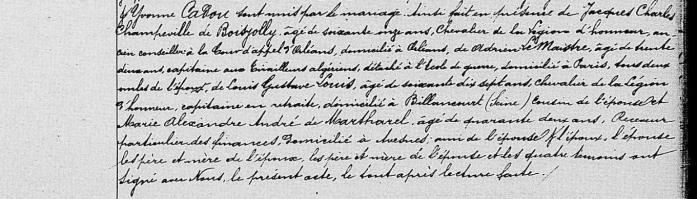 & Yvonne Cadou sont unis par le mariage. Ainsi fait en présence de Jacques Charles
Champeville de Boisjolly, âgé de soixante onze ans, Chevalier de la Légion d'honneur, an-
cien conseiller à la Cour d'appel d'Orléans, domicilié à Orléans, de Adrien Le Maistre, âgé de trente
deux ans, capitaine aux Tirailleurs algériens, détaché à l'Ecole de guerre, domicilié à Paris, tous deux
oncles de l'époux, de Louis Gustave Louis, âgé de soixante dix sept ans, chevalier de la Légion
d'honneur, capitaine en retraite, domicilié à Billancourt (Seine) cousin de l'épouse et
Marie Alexandre André de Martharel, âgé de quarante deux ans, Receveur
particulier des finances, domicilié à Avesnes, ami de l'épouse. L'époux, l'épouse
les père et mère de l'époux, les père et mère de l'épouse et les quatre témoins ont
signé avec Nous, le présent acte, le tout après lecture faite. /